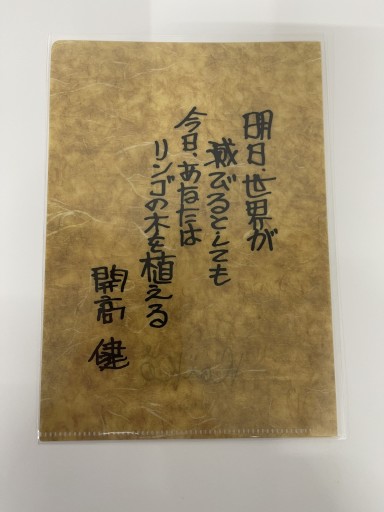 明日世界が
滅びるとしても
今日、あなたは
リンゴの木を植える
開高健